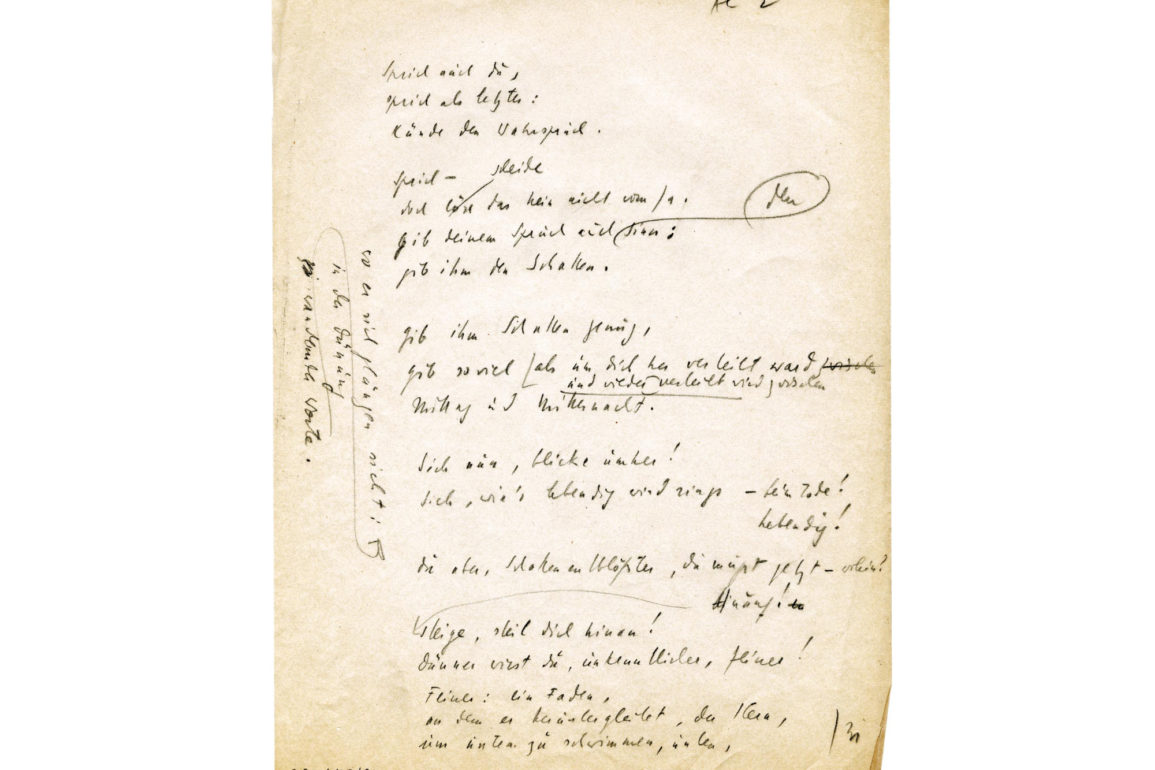 Sprich auch du,
sprich als letzter:
Künde den Wahrspruch.
Sprich – scheide
doch löse das Nein nicht vom Ja.
den
gib deinem Spruch auch Sinn:
gib ihm den Schatten.
gib ihm Schatten genug,
gib soviel als um dich her verteilt ward zwischen
und wieder verteilt wird, zwischen
Mittag und Mitternacht.
Sieh nun, blicke umher!
Sieh, wie's lebendig wird rings – beim Tode!
Lebendig!
Du aber, Schattenentblößter, du mußt jetzt – wohin?
Hinauf!
Steige, steil dich hinan!
Dünner wirst du, unkenntlicher, feiner!
Feiner: ein Faden,
an dem er heruntergleitet, der Stern,
um unten zu schwimmen, unten,
wo er sich glänzen sieht:
in der Dünung
wandernder Worte.